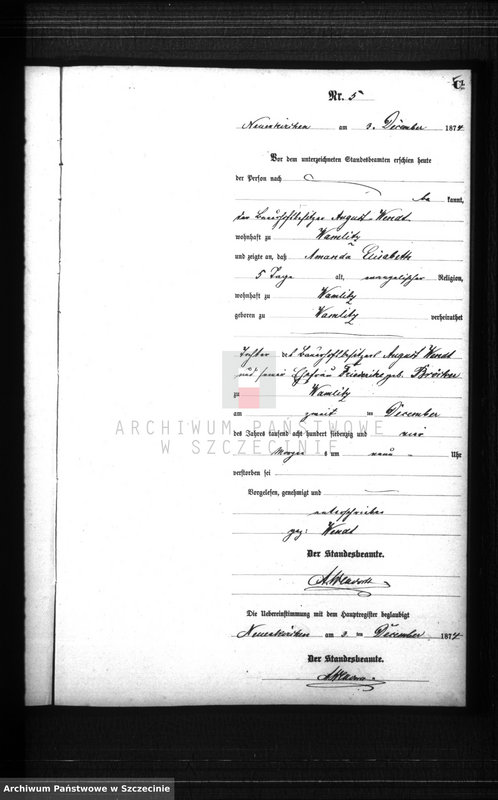 C.
Nr. 5
Neuenkirchen am 3. December 1874
Vor dem unterzeichneten Standesbeamten erschien heute
der Person nach
be kannt,
der Bauerhofbesitzer August Wendt
wohnhaft zu Wamlitz
und zeigte an, daß Amanda Elisabeth
5 Tage alt, evangelischer Religion,
wohnhaft zu Wamlitz
geboren zu Wamlitz verheirathet
Tochter des Bauerhofbesitzers August Wendt
und seiner Ehefrau Friederike geb. Bröcker
zu Wamlitz
am zweit ten December
des Jahres tausend acht hundert siebenzig und vier
Morgens um neun Uhr
verstorben sei
Vorgelesen, genehmigt und
unterschrieben
gez: Wendt
Der Standesbeamte.
Die Uebereinstimmung mit dem Hauptregister beglaubigt
Neuenkirchen am 3 ten December 1874
Der Standesbeamte.
ARCHIWUM PAŃSTWOWE
W SZCZECINIE
Archiwum Państwowe w Szczecinie